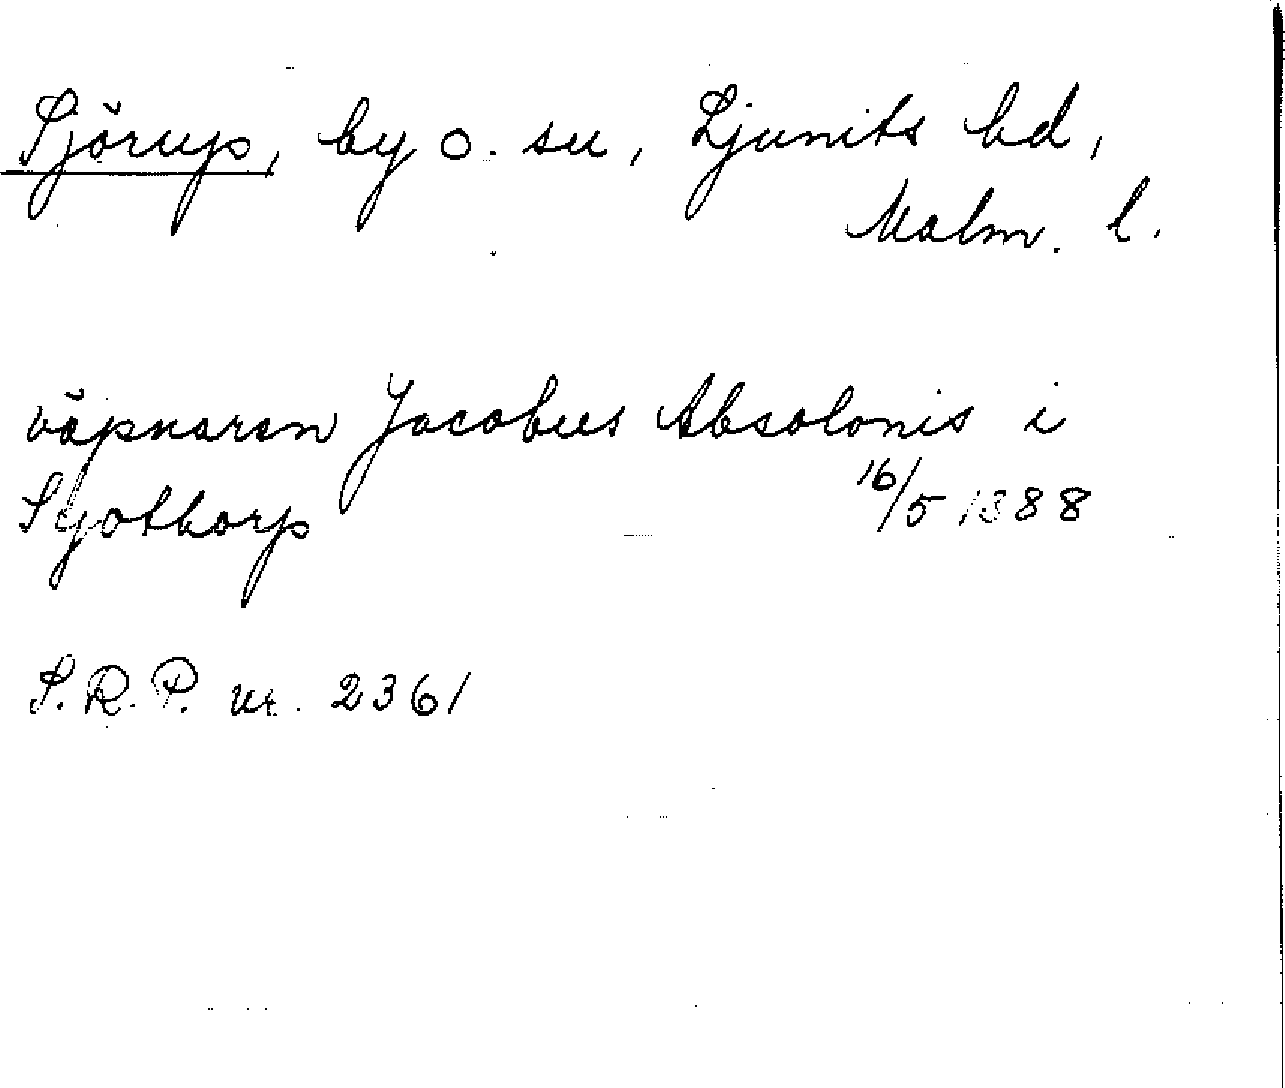 Sjörup, by o. sn, Ljunits hd,
Malm. l.
väpnaren Jacobus Absolonis i
Syothorp 16/5 1388
S.R.P. nr. 2361